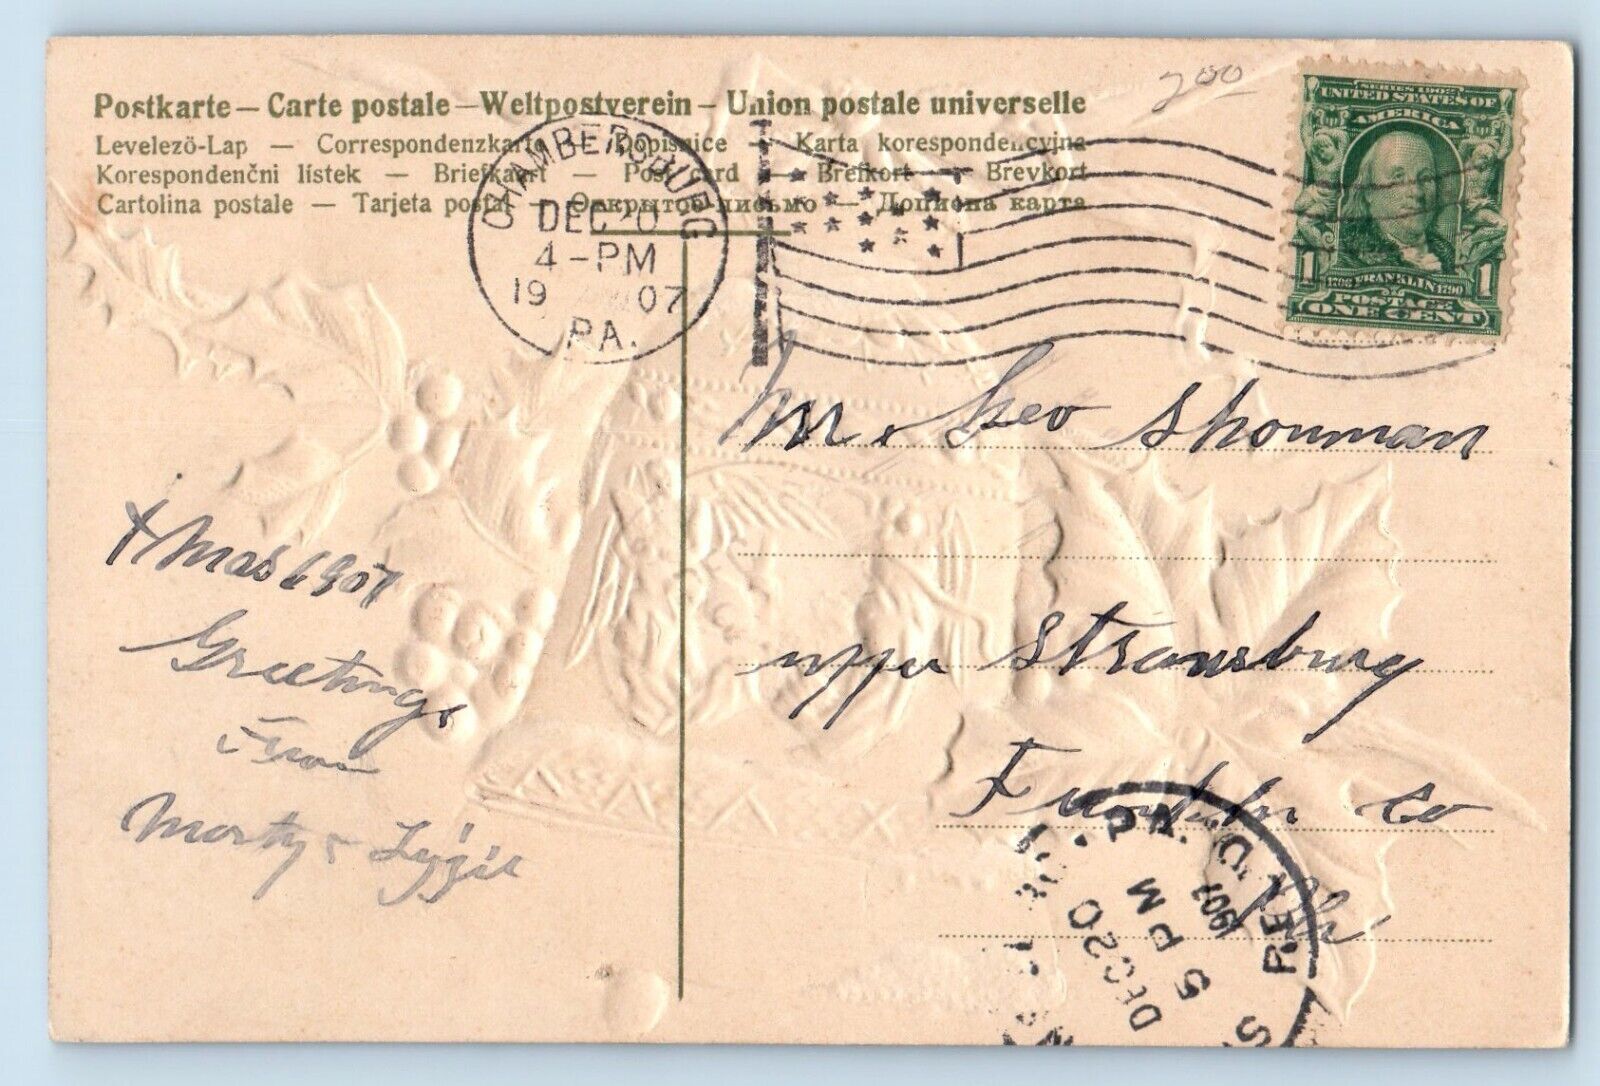 200
Postkarte — Carte postale — Weltpostverein — Union postale universelle
Levelezö-Lap — Correspondenzkarte — Dopisnice — Karta korespondencyjna
Korespondenčni lístek — Briefkaart — Post card — Brefkort — Brevkort
Cartolina postale — Tarjeta postal — Открытое письмо — Дописна карта
CHAMBERSBURG
DEC 20
4-PM
19 07
PA.
SERIES 1902
UNITED STATES OF
AMERICA
1 FRANKLIN 1
1706 1790
POSTAGE
ONE CENT
Mr. Geo Shouman
upper Stransburg
Franklin Co
Pa
Xmas 1907
Greetings
From
Morty &
REC'D.
DEC 20
5 PM
1907